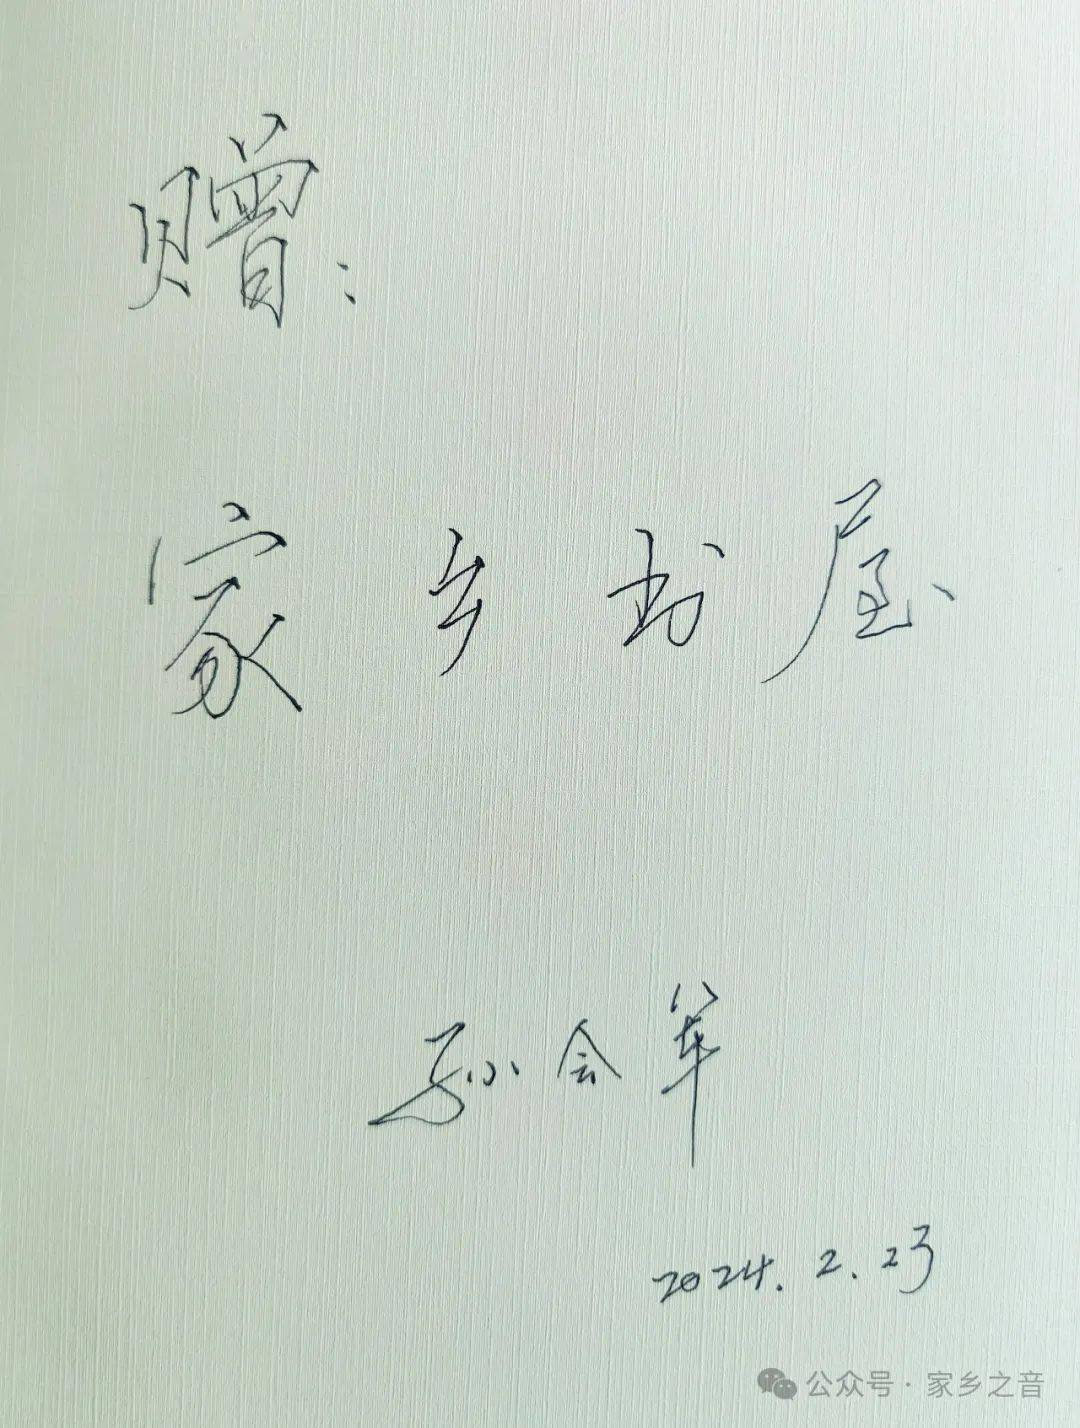 赠：
家乡书屋
孙会军
2024.2.23
公众号·家乡之音